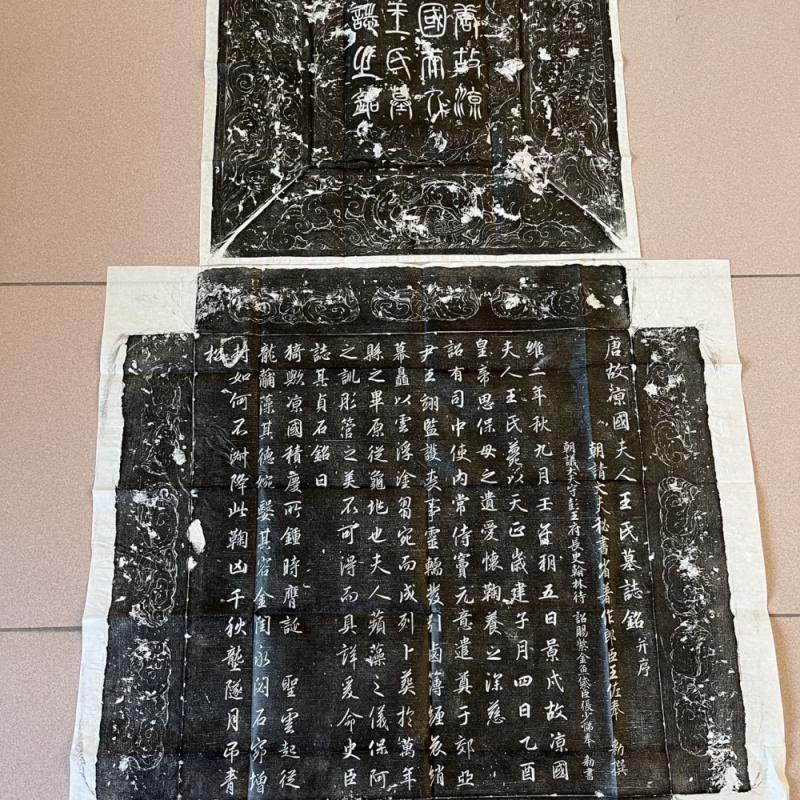 唐故涼
國夫人
王氏墓
誌之銘
唐故涼國夫人王氏墓誌銘 并序
朝請大夫秘書省著作郎臣王佐奉 勅撰
朝議大夫守彭王府長史翰林待 詔賜紫金魚袋臣張少悌奉 勅書
維二年秋九月壬 朔五日景戌故涼國
夫人王氏薨以天正歲建子月四日乙酉
皇帝思保母之遺愛懷鞠養之深慈
詔有司中使內常侍竇元 遣奠于郊亞
尹王翊監護喪事靈轜 引鹵簿 哀綃
幕矗以雲浮塗芻宛而成列卜葬於萬年
縣之畢原從龜地也夫人蘋藻之儀保阿
之訓彤管之美不可得而具詳爰命史臣
誌其貞石銘曰
猗歟涼國積慶所鍾時膺誕 聖雲起從
龍黼藻其德婉嫕其容金閨永閟石窌增
封如何不淑降此鞠凶千秋 隧月弔青
松